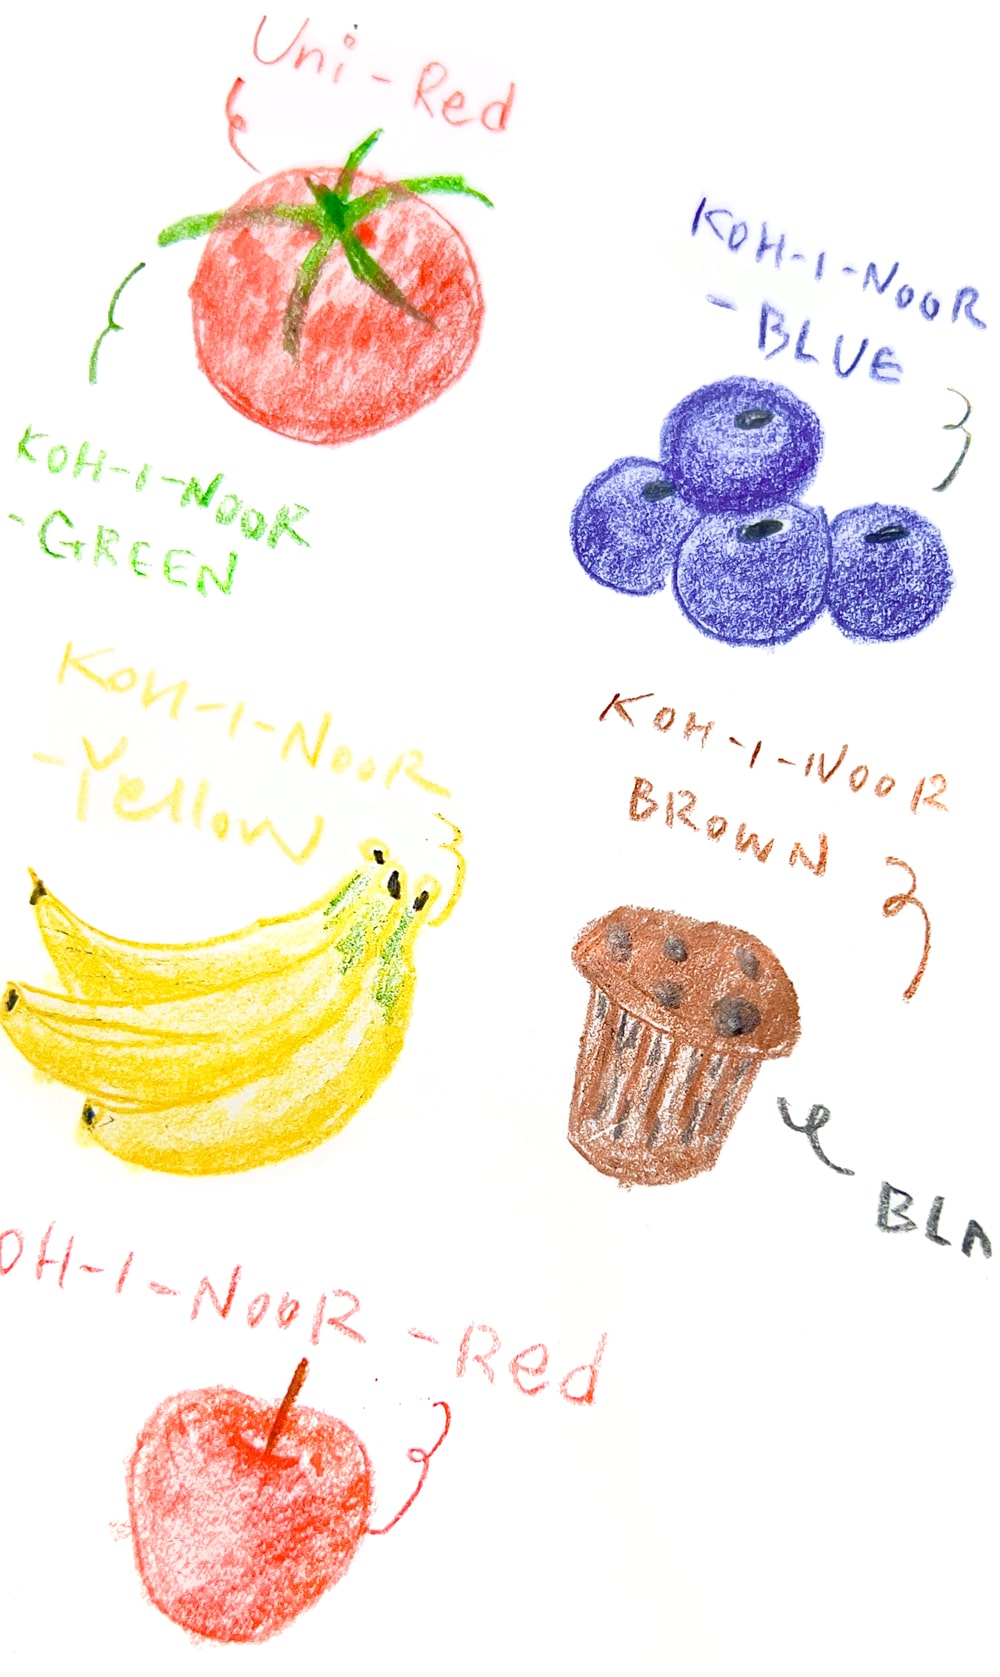 Uni-Red
KOH-I-NOOR
-BLUE
KOH-I-NOOR
-GREEN
KOH-I-NOOR
-Yellow
KOH-I-NOOR
BROWN
OH-I-NOOR -Red